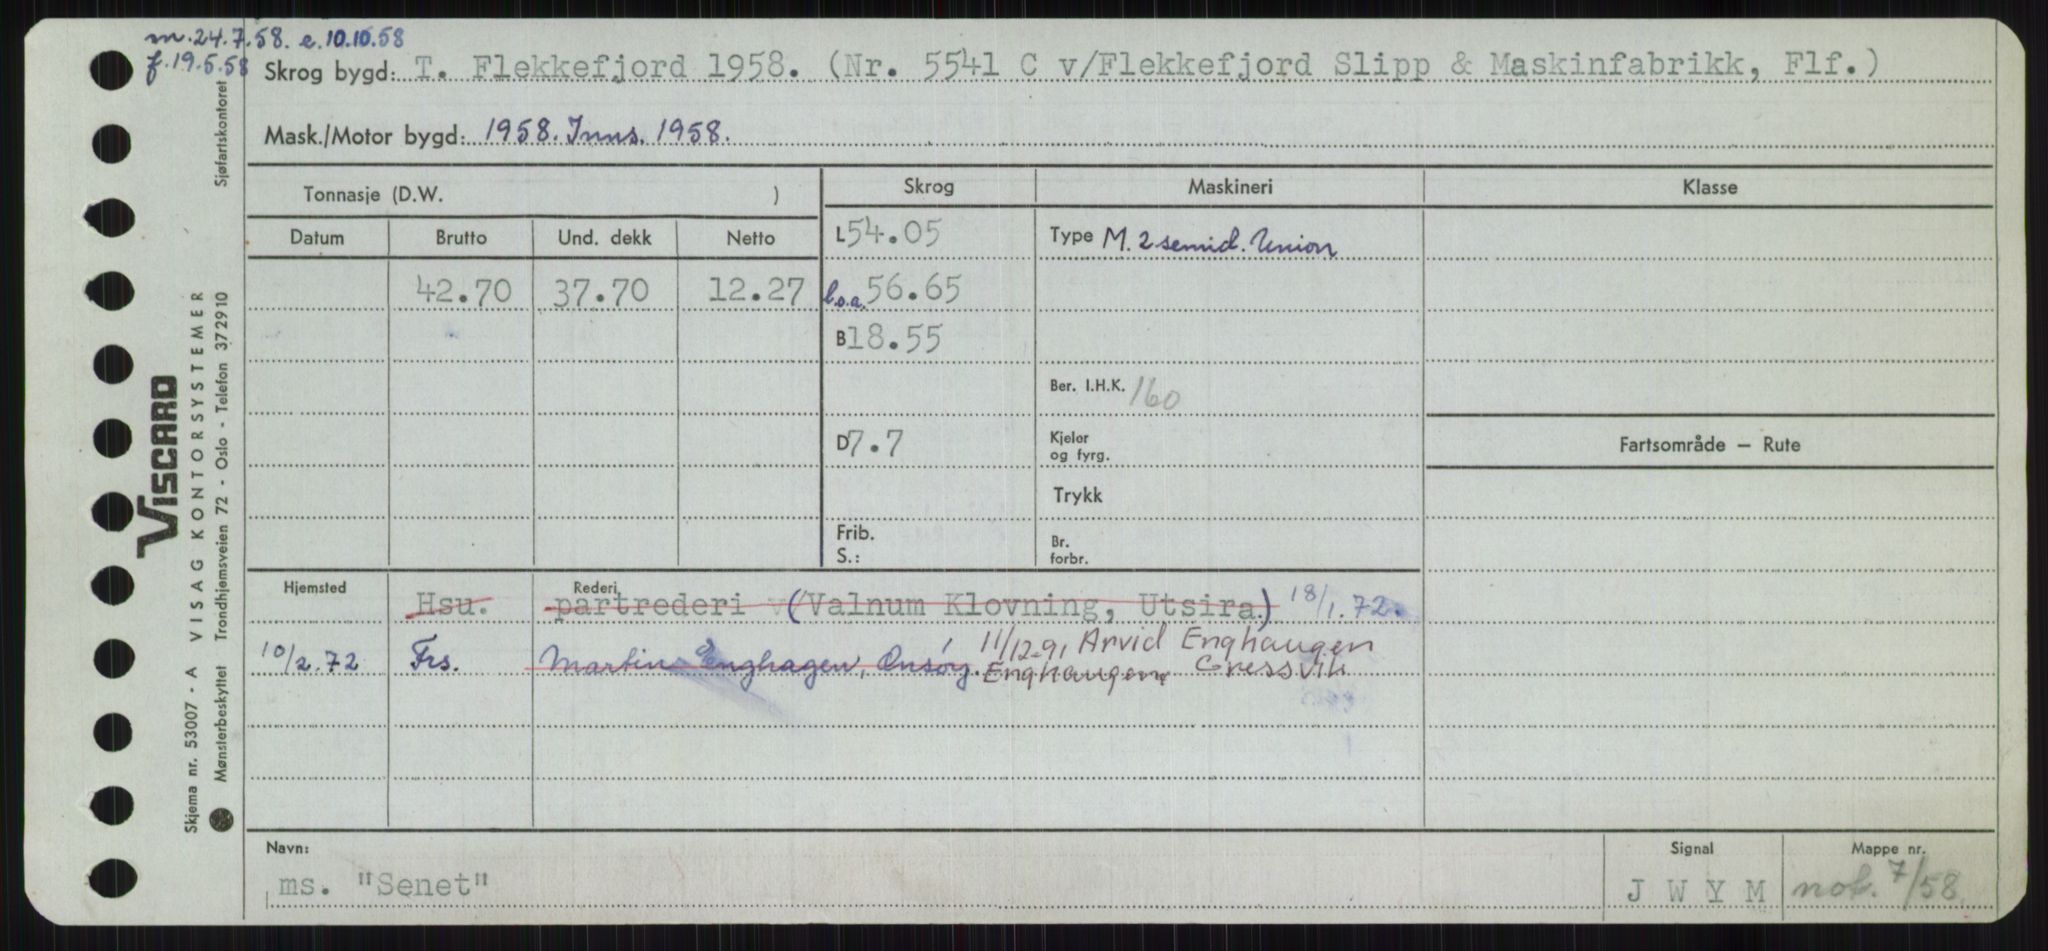 m. 24.7.58. e. 10.10.58
f. 19.5.58
Skrog bygd: T. Flekkefjord 1958. (Nr. 5541 C v/Flekkefjord Slipp & Maskinfabrikk, Flf.)
Mask./Motor bygd: 1958. Inns. 1958.
Tonnasje (D.W. ) Skrog Maskineri Klasse
Datum Brutto Und. dekk Netto L 54.05 Type M. 2 semid. Union
42.70 37.70 12.27 l.o.a. 56.65
B 18.55
Ber. I.H.K. 160
D 7.7 Kjeler og fyrg. Fartsområde — Rute
Trykk
Frib. S.: Br. forbr.
Hjemsted Rederi
Hsu. partrederi v(/Valnum Klovning, Utsira.) 18/1.72.
10/2.72 Frs. Martin Enghagen, Onsøy. 11/12-91 Arvid Enghaugen
Enghaugen Gressvik
Navn: Signal Mappe nr.
ms. "Senet" J W Y M not. 7/58.
Sjøfartskontoret
VISCARD
VISAG KONTORSYSTEMER
Skjema nr. 53007 - A
Mønsterbeskyttet Trondhjemsveien 72 - Oslo - Telefon 372910